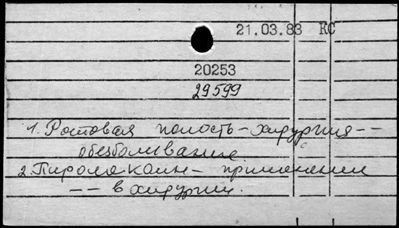 21.03.83 КС
20253
29599
1. Ротовая полость - хирургия --
обезболивание
2. Пиромекаин - применение
-- в хирургии.